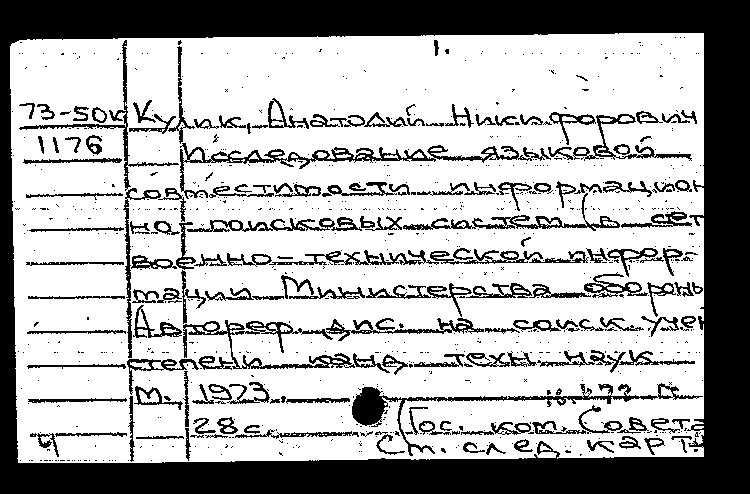 1.
73-50к Кулик, Анатолий Никифорович
1176 Исследование языковой
совместимости информацион
но-поисковых систем (в сет
военно-технической инфор-
мации Министерства оборонь
Автореф. дис. на соиск. учен
степени канд. техн. наук
М., 1973.
28 с. (Гос. ком. Совета
4 См. след. карт.